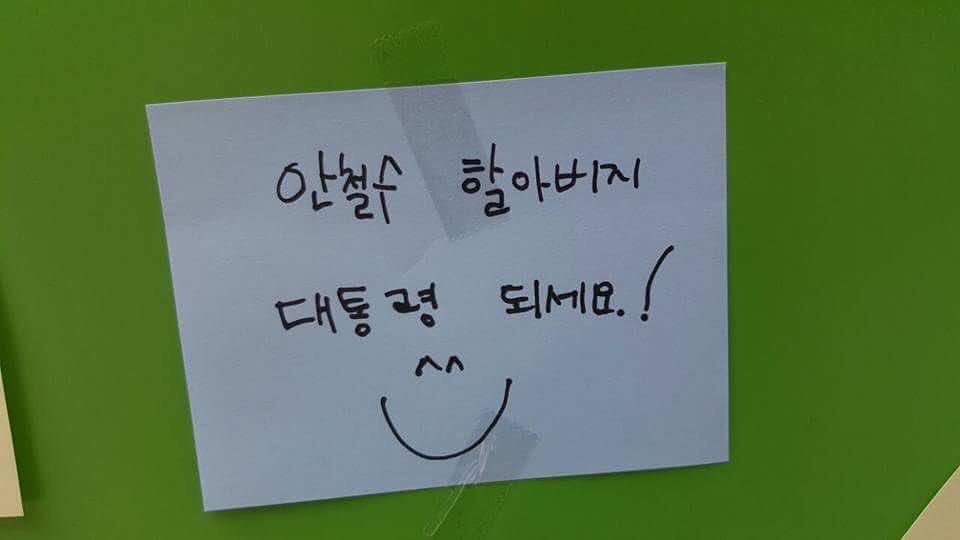 안철수 할아버지
대통령 되세요.!
^^